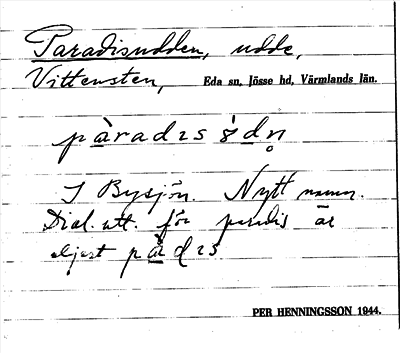 Paradisudden, udde,
Vittensten, Eda sn, Jösse hd, Värmlands län.
pàradıs ùdn̥
I Bysjön. Nytt namn.
Dial. utt. för paradis är
eljest pàdıs
PER HENNINGSSON 1944.